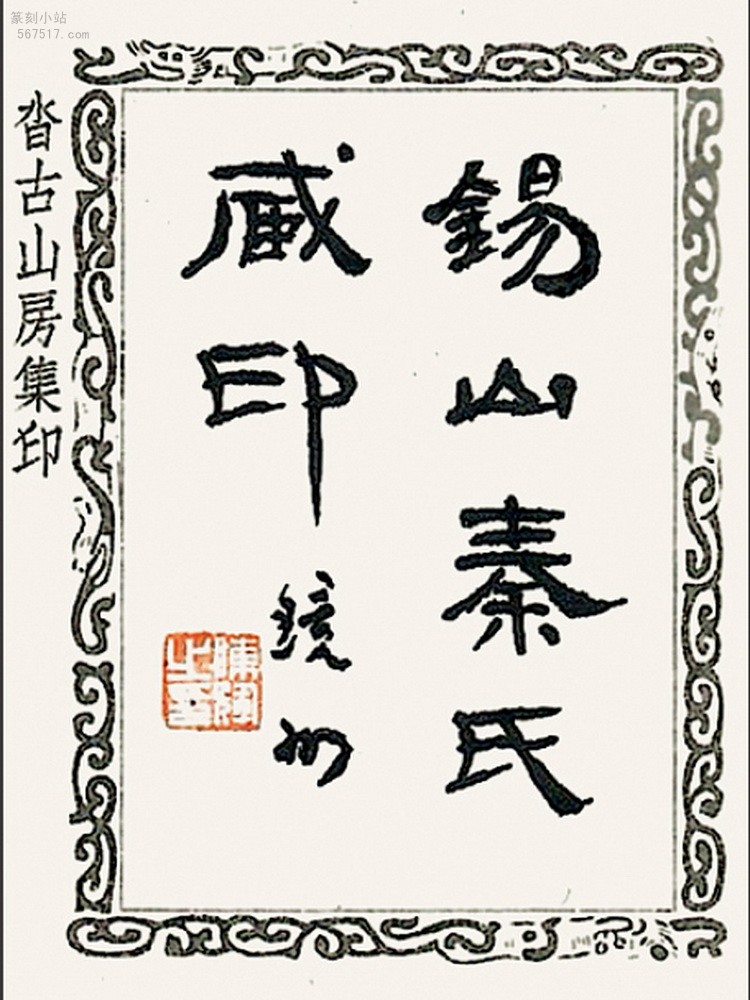 篆刻小站
567517.com
錫山秦氏
藏印
鏡州
沓古山房集印